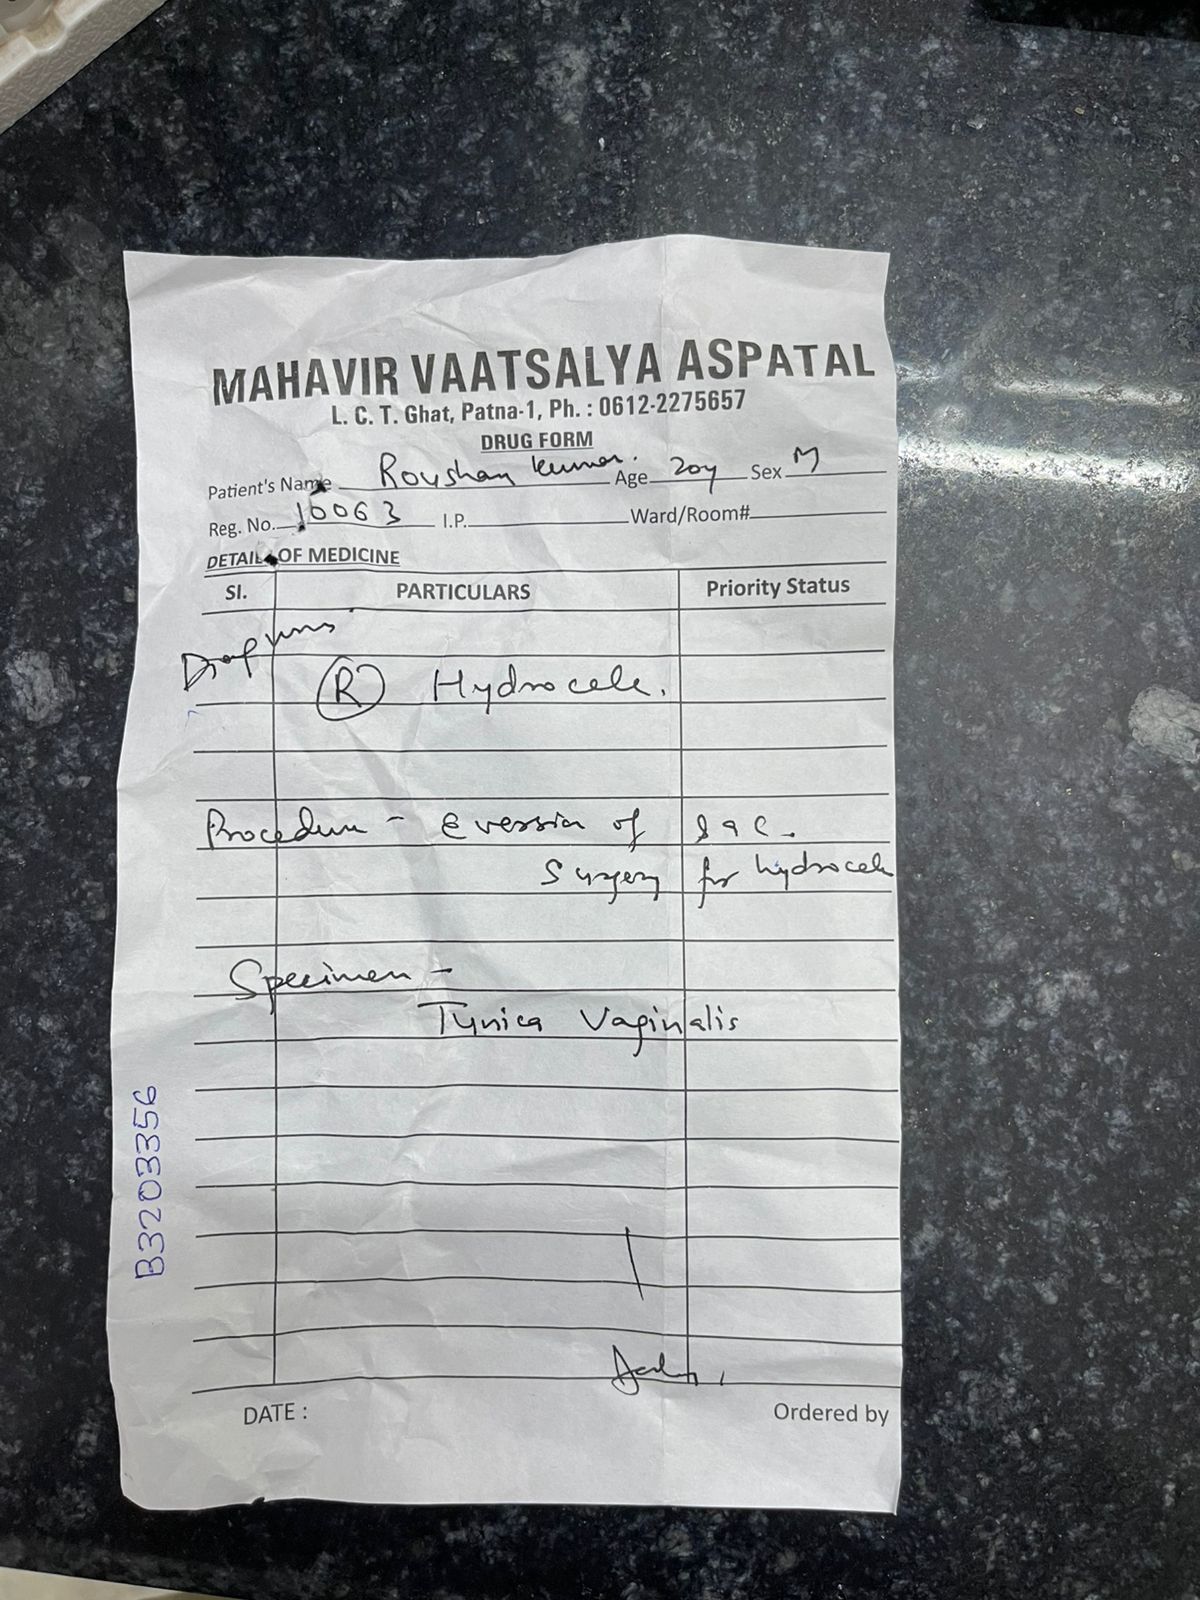 MAHAVIR VAATSALYA ASPATAL
L. C. T. Ghat, Patna-1, Ph. : 0612-2275657
DRUG FORM
Patient's Name Roushan Kumar. Age 20y Sex M
Reg. No. 10063 I.P. Ward/Room#
DETAILS OF MEDICINE
Sl. PARTICULARS Priority Status
(R) Hydrocele.
Procedure - Eversion of sac.
Surgery for hydrocele
Specimen -
Tunica Vaginalis
B3203356
DATE : Ordered by